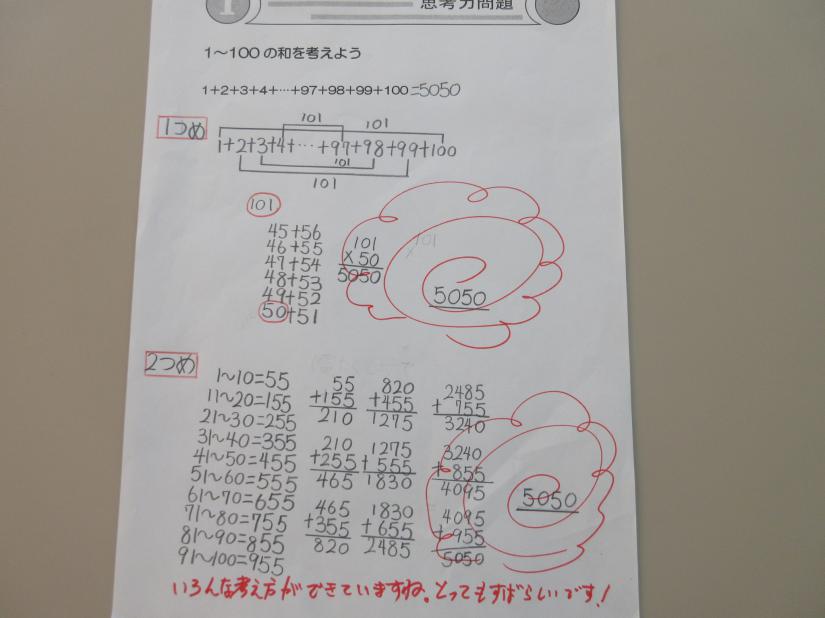 1 思考力問題
1～100の和を考えよう
1+2+3+4+…+97+98+99+100=5050
1つめ
101 101
1+2+3+4+…+97+98+99+100
101
101
101
45+56
46+55
47+54
48+53
49+52
50+51
101
×50
5050
101
×
5050
2つめ
1～10=55
11～20=155
21～30=255
31～40=355
41～50=455
51～60=555
61～70=655
71～80=755
81～90=855
91～100=955
55
+155
210
210
+255
465
465
+355
820
820
+455
1275
1275
+555
1830
1830
+655
2485
2485
+755
3240
3240
+855
4095
4095
+955
5050
5050
いろんな考え方ができていますね。とってもすばらしいです！